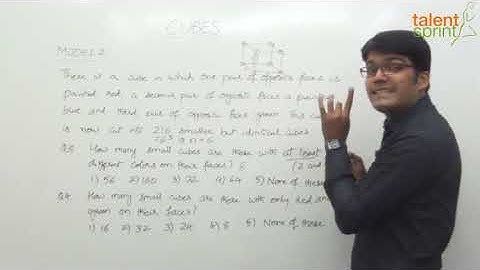 talent
sprint
CUBES
MODEL 2
There is a cube in which one pair of opposite faces is
painted red, a second pair of opposite faces is painted
blue and third pair of opposite faces green. This cube
is now cut into 216 smaller but identical cubes
Q.3 How many small cubes are there with at least
different colors on their faces?
1) 56 2) 160 3) 32 4) 64 5) None of these
Q.4 How many small cubes are there with only red and
green on their faces?
1) 16 2) 32 3) 24 4) 8 5) None of these